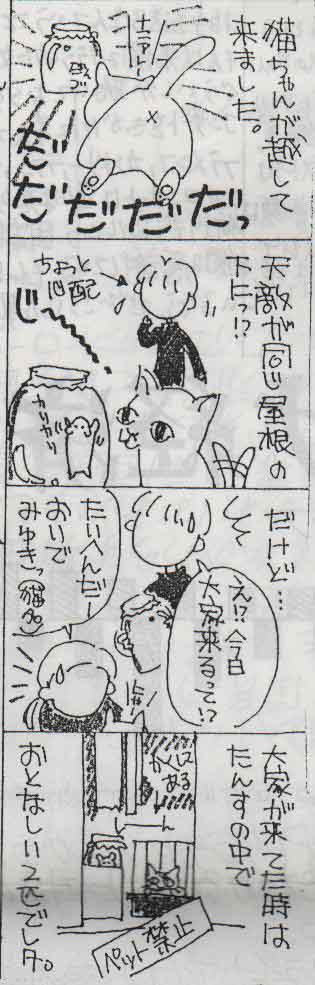 猫ちゃんが越して
来ました。
ナニアレー
だだだだだっ
天敵が同じ屋根の
下にっ!?
ちょっと
心配
じ〜
カリカリ
だけど…
え!?今日
大家来るって!?
たいへんだー
おいで
みゆきっ(猫名)
大家が来てた時は
たんすの中で
かくしてある
しーん
ペット禁止
おとなしい2匹でした。